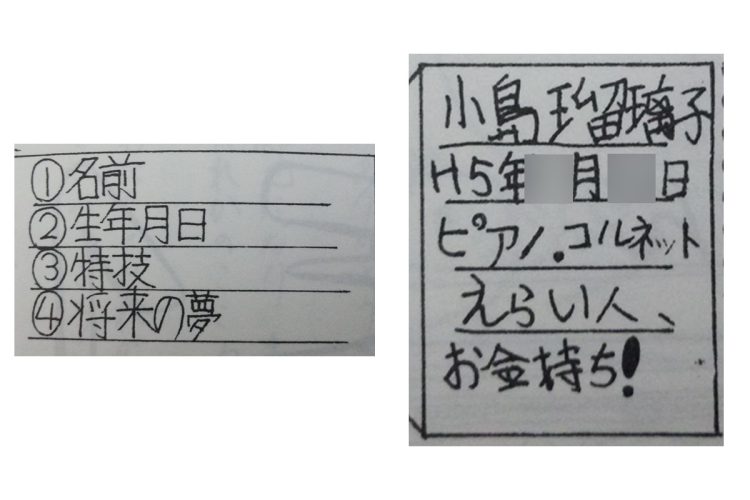 ①名前
②生年月日
③特技
④将来の夢
小島瑠璃子
H5年 月 日
ピアノ.コルネット
えらい人、
お金持ち!